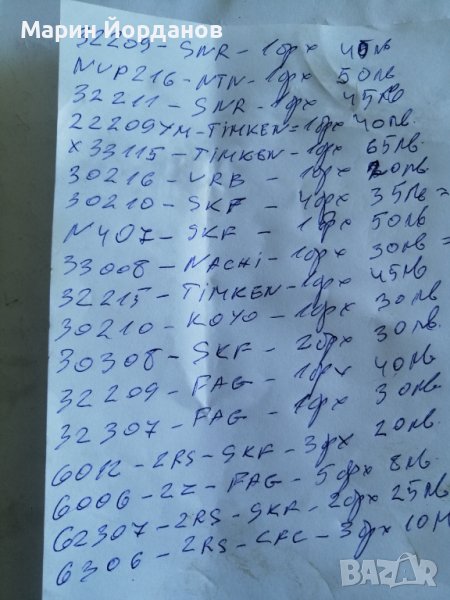 Марин Йорданов
32209 - SNR - 1брх 45лв
NUP216 - NTN - 1брх 50лв
32211 - SNR - 1брх 45лв
22209YM - TIMKEN = 1брх 40лв.
X33115 - TIMKEN - 1брх 65лв.
30216 - URB - 1брх 20лв
30210 - SKF - 4брх 35лв =
N407 - SKF - 1брх 50лв
33008 - NACHI - 1брх 30лв =
32215 - TIMKEN - 1брх 45лв
30210 - KOYO - 1брх 30лв
30308 - SKF - 2брх 30лв.
32209 - FAG - 1брх 40лв
32307 - FAG - 1брх 30лв
6012 - 2RS - SKF - 3брх 20лв.
6006 - 2Z - FAG - 5брх 8лв.
62307 - 2RS - SKF - 2брх 25лв
6306 - 2RS - CFC - 3брх 10лв
BAZAR